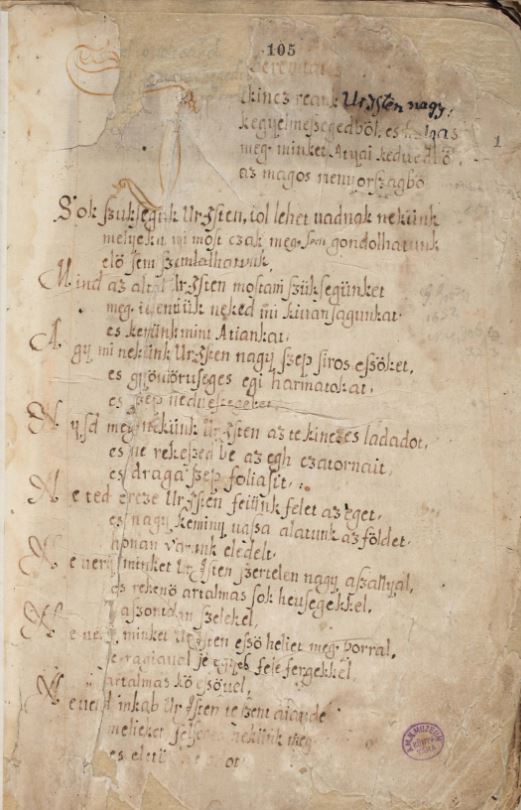 105
tekincz reank Ur Jsten nagy,
kegyelmessegedböl, es halgas
meg minket Atyai keduedbö
az magos menyorszagbö
1
Sok szuksegük Ur Jsten, iol lehet uadnak nekünk
melyeket mi most czak meg sem gondolhatunk
elö sem szamlalhatunk,
Mind az altal Ur Jsten mostani szüksegünket
meg ielentiük neked mi kiuansagunkat
es kerünk mint Atiankat.
Agy mi nekünk Ur Jsten nagy szep siros essöket,
es gyönörüseges egi harmatokat,
es szep nedüessegeket
Nysd meg nekünk Ur Jsten az te kinczes ladadot,
es ne rekeszd be az egh czatornait,
es draga szep foliasit,
Ne ted ercze Ur Jsten feiünk felet az eget,
es nagy keminy uassa alatunk az földet
honan varunk eledelt.
Ne uerij minket Ur Jsten szertelen nagy aszallyal,
es rekenö artalmas sok heusegekkel,
aszontoan szelekel,
Ne uerj minket Ur Jsten essö heliet meg porral,
se ragiaual se egyeb fele fergekkel
artalmas kö essöuel,
Ne uerd inkab Ur Jsten te szent aiandе
melieket
nekünk meg
es
A.M.N. MUZEUM KÖNYVTÁRA